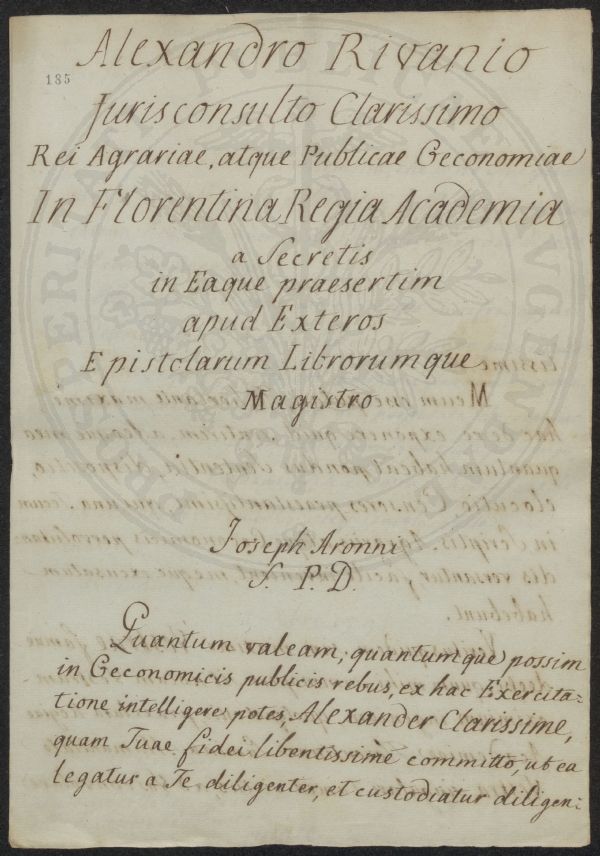 Alexandro Rivanio
185
Jurisconsulto Clarissimo
Rei Agrariae, atque Publicae Oeconomiae
In Florentina Regia Academia
a Secretis
in Eaque praesertim
apud Exteros
Epistolarum Librorumque
Magistro
Joseph Aronni
S. P. D.
Quantum valeam, quantumque possim
in Oeconomicis publicis rebus, ex hac Exercita=
tione intelligere potes, Alexander Clarissime,
quam Tuae fidei libentissimè committo, ut ea
legatur a Te diligenter, et custodiatur diligen: